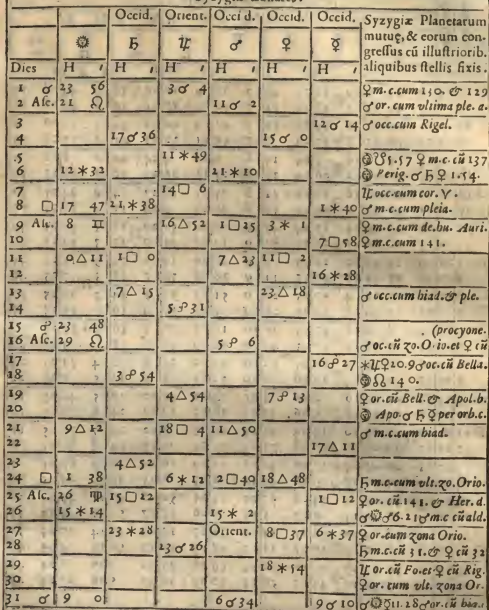 Occid. Orient. Occid. Occid. Occid. Syzygiæ Planetarum
mutuę, & eorum con-
☉ ♄ ♃ ♂ ♀ ☿ gressus cū illustriorib.
Dies H ′ H ′ H ′ H ′ H ′ H ′ aliquibus stellis fixis.
1 ☌ 23 56 3 ☌ 4 ♀ m.c.cum 130. & 129
2 Asc. 21 ♌ 11 ☌ 2 ♂ or. cum vltima ple. a.
3 12 ☌ 14 ♂ occ.cum Rigel.
4 17 ☌ 36 15 ☌ 0
5 11 ⚹ 49 ☉ ☋ 5.57 ♀ m.c. cū 137
6 12 ⚹ 32 21 ⚹ 10 ☉ Perig. ☌ ♄ ♀ 1.54.
7 14 □ 6 ♃ occ.cum cor. ♈.
8 □ 17 47 21 ⚹ 38 1 ⚹ 40 ♂ m.c.cum pleia.
9 Asc. 8 ♊ 16 △ 52 1 □ 25 3 ⚹ 1 ♀ m.c.cum de.hu. Auri.
10 7 □ 58 ♀ m.c.cum 141.
11 0 △ 11 1 □ 0 7 △ 23 11 □ 2
12 16 ⚹ 28
13 7 △ 15 23 △ 18 ♂ occ.cum hiad.& ple.
14 5 ☍ 31
15 ☍ 23 48 (procyone.
16 Asc. 29 ♌ 5 ☍ 6 ♂ oc.cū zo.O io.et ♀ cū
17 16 ☍ 27 ⚹ ♃ ♀ 20.9 ♂ oc.cū Bella.
18 3 ☍ 54 ☉ ☊ 14 0.
19 4 △ 54 7 ☍ 13 ♀ or.cū Bell. & Apol.b.
20 ☉ Apo. ☌ ♄ ☿ per orb.c.
21 9 △ 12 18 □ 4 11 △ 50 ♂ m.c.cum hiad.
22 17 △ 11
23 4 △ 52
24 □ 1 38 6 ⚹ 12 2 □ 40 18 △ 48 ♄ m.c.cum vlt.zo.Orio.
25 Asc. 26 ♍ 15 □ 12 1 □ 12 ♀ or. cū.141. & Her.d.
26 15 ⚹ 14 15 ⚹ 2 ☌ ☉ ♂ 6.21 ♂ m.c cū ald.
27 23 ⚹ 28 Orient. 8 □ 37 6 ⚹ 37 ♀ or.cum zona Orio.
28 23 ☌ 26 ♄ m.c.cū 31.& ♀ cū 32
29 18 ⚹ 54 ♃ or.cū Fo.et ♀ cū Rig.
30 ♀ or. cum vlt. zona Or.
31 ☌ 9 0 6 ☌ 34 9 ☌ 10 ☌ ☉ ☿ 11.28 ♂ or.cū hia.